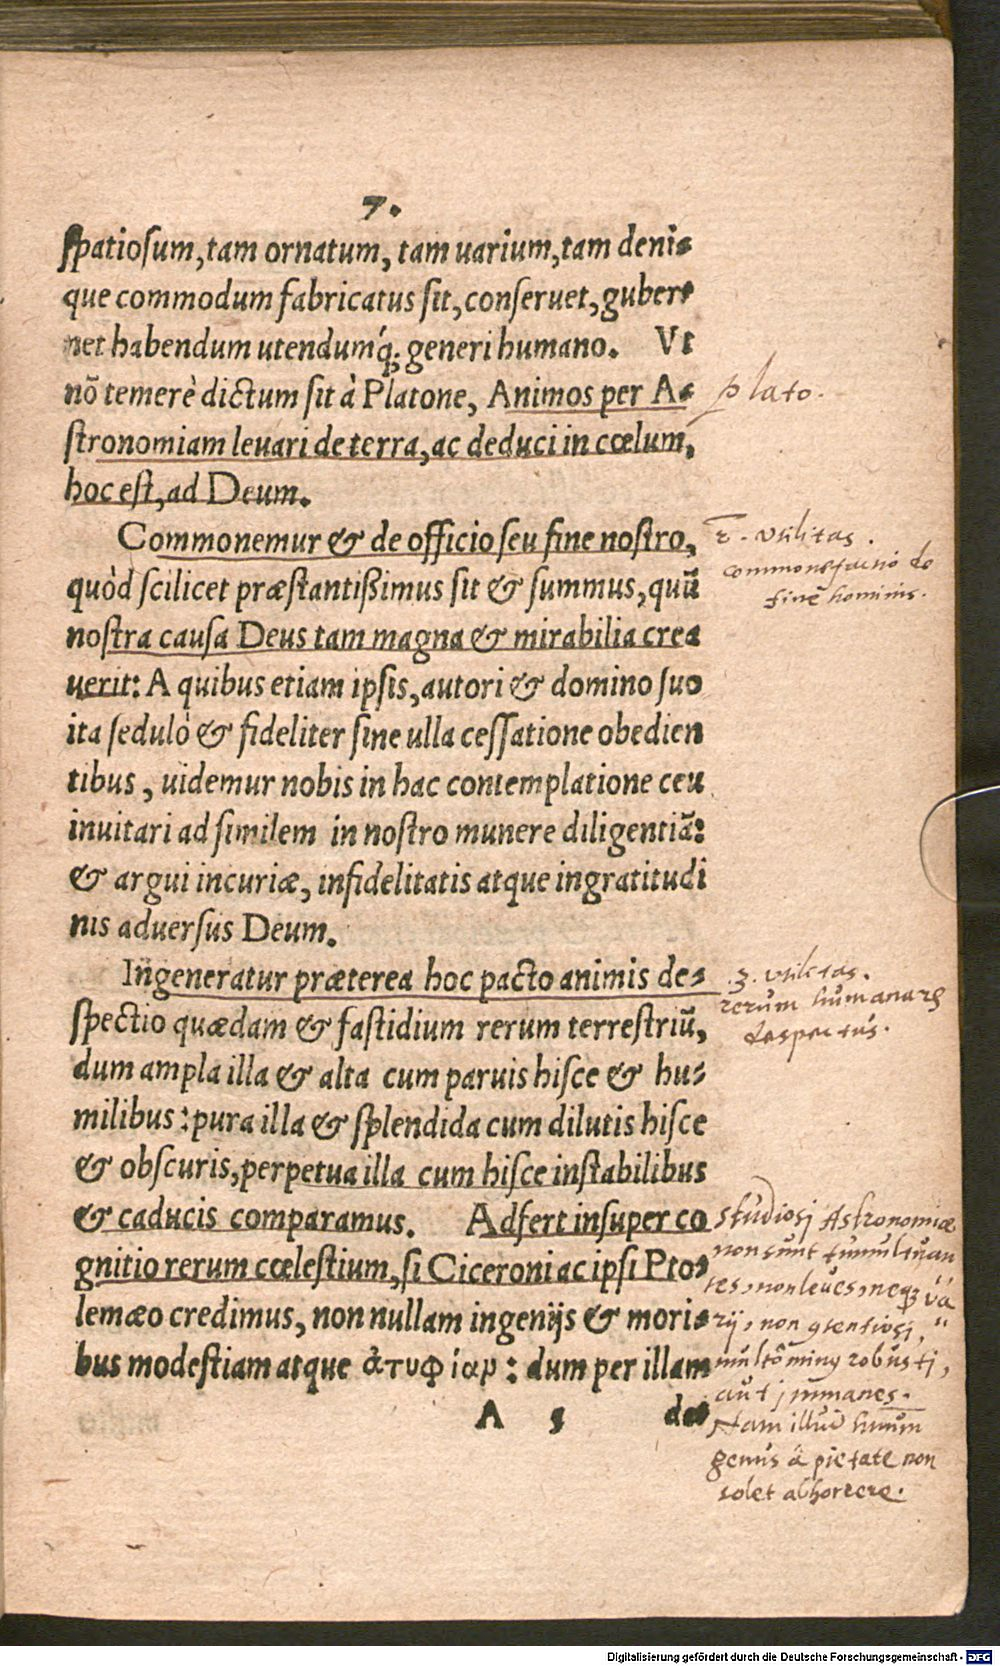 7.
ſpatioſum, tam ornatum, tam uarium, tam deni-
que commodum fabricatus ſit, conſeruet, guber-
net habendum utendumq́; generi humano. Vt
nō temerè dictum ſit à Platone, Animos per A-
ſtronomiam leuari de terra, ac deduci in cœlum,
hoc eſt, ad Deum.
Commonemur & de officio ſeu fine noſtro,
quòd ſcilicet præſtantißimus ſit & ſummus, quū
noſtra cauſa Deus tam magna & mirabilia crea
uerit: A quibus etiam ipſis, autori & domino ſuo
ita ſedulò & fideliter ſine ulla ceſſatione obedien
tibus, uidemur nobis in hac contemplatione ceu
inuitari ad ſimilem in noſtro munere diligentiā:
& argui incuriæ, infidelitatis atque ingratitudi
nis aduerſus Deum.
Ingeneratur præterea hoc pacto animis de-
ſpectio quædam & faſtidium rerum terreſtriū,
dum ampla illa & alta cum paruis hiſce & hu-
milibus: pura illa & ſplendida cum dilutis hiſce
& obſcuris, perpetua illa cum hiſce inſtabilibus
& caducis comparamus. Adfert inſuper co
gnitio rerum cœleſtium, ſi Ciceroni ac ipſi Pto-
lemæo credimus, non nullam ingenijs & mori-
bus modeſtiam atque ἀτυφίαν: dum per illam
A 5 de-
plato.
2. Vtilitas.
commonefactio de
finē hominis.
3. vtilitas.
rerum humanarū
despectus.
Studiosi Astronomiæ
non sunt tumultuan
tes, non leues, neq; va
rij, non
aut inmanes.
Nam illud
genus à pietate non
solet abhorrere.
Digitalisierung gefördert durch die Deutsche Forschungsgemeinschaft - DFG